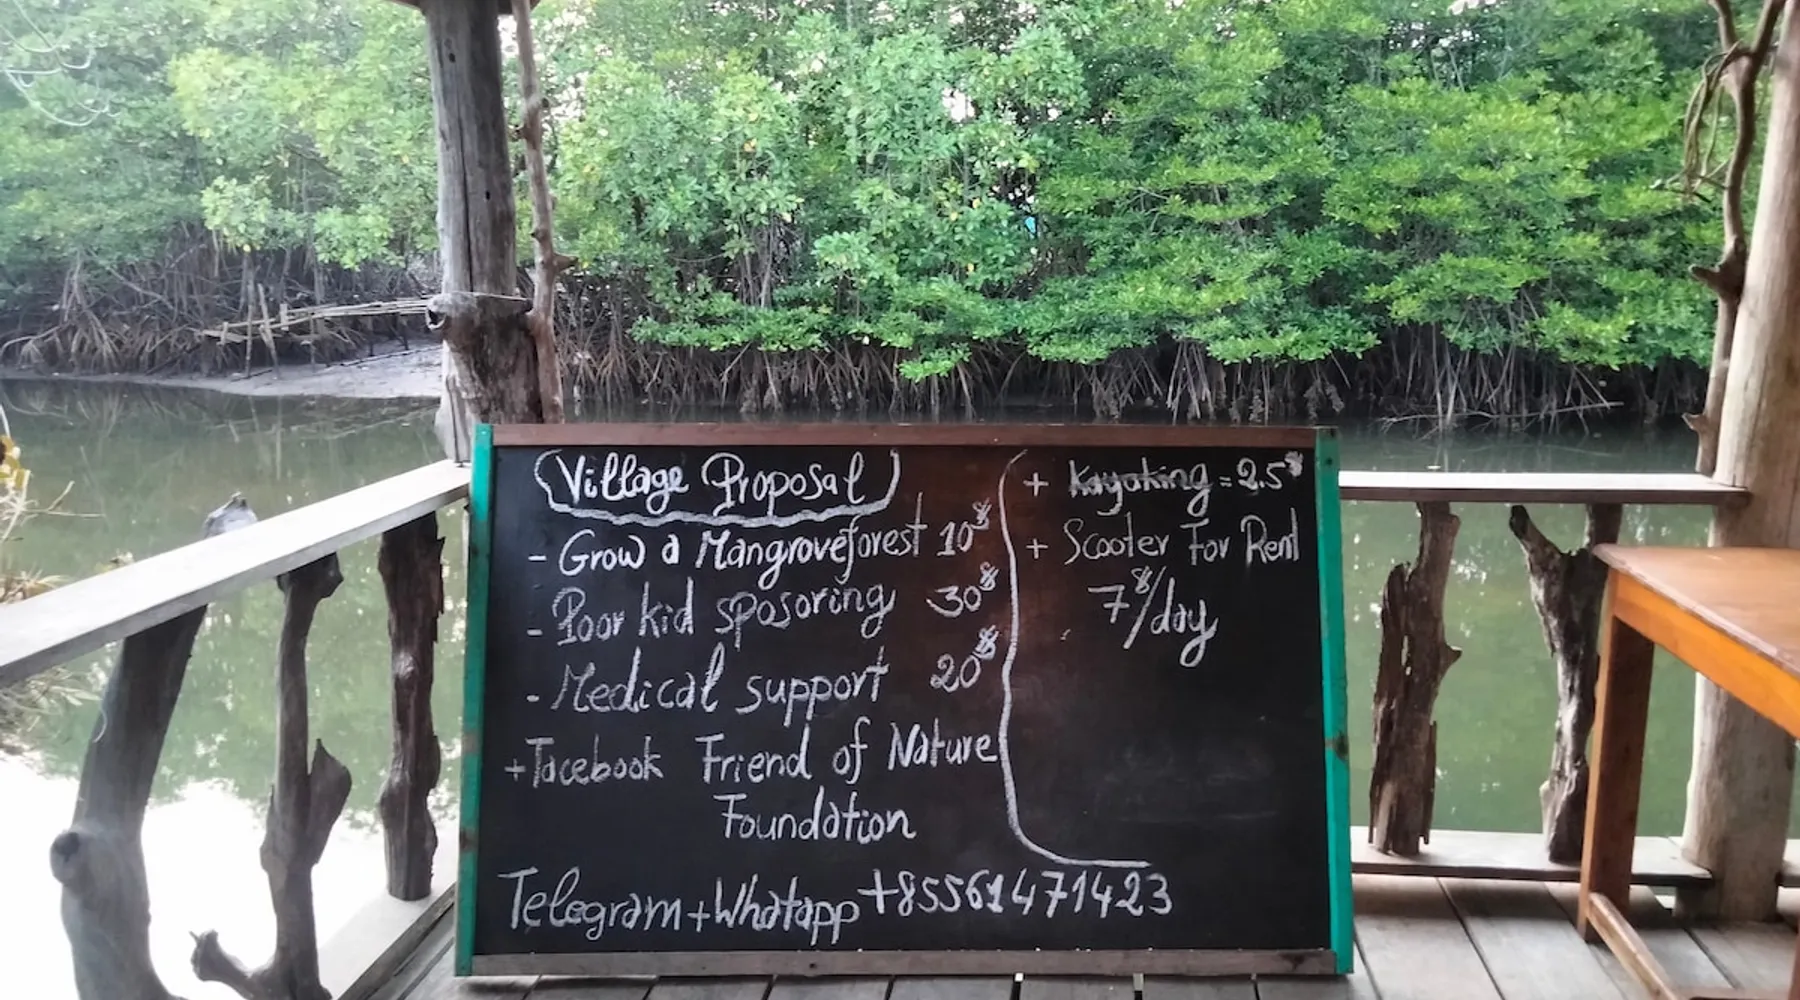 Village Proposal
- Grow a Mangroveforest 10$
- Poor kid sposoring 30$
- Medical support 20$
+ Facebook Friend of Nature
Foundation
+ Kayaking = 2.5$
+ Scooter For Rent
7$/day
Telegram + Whatapp +85561471423